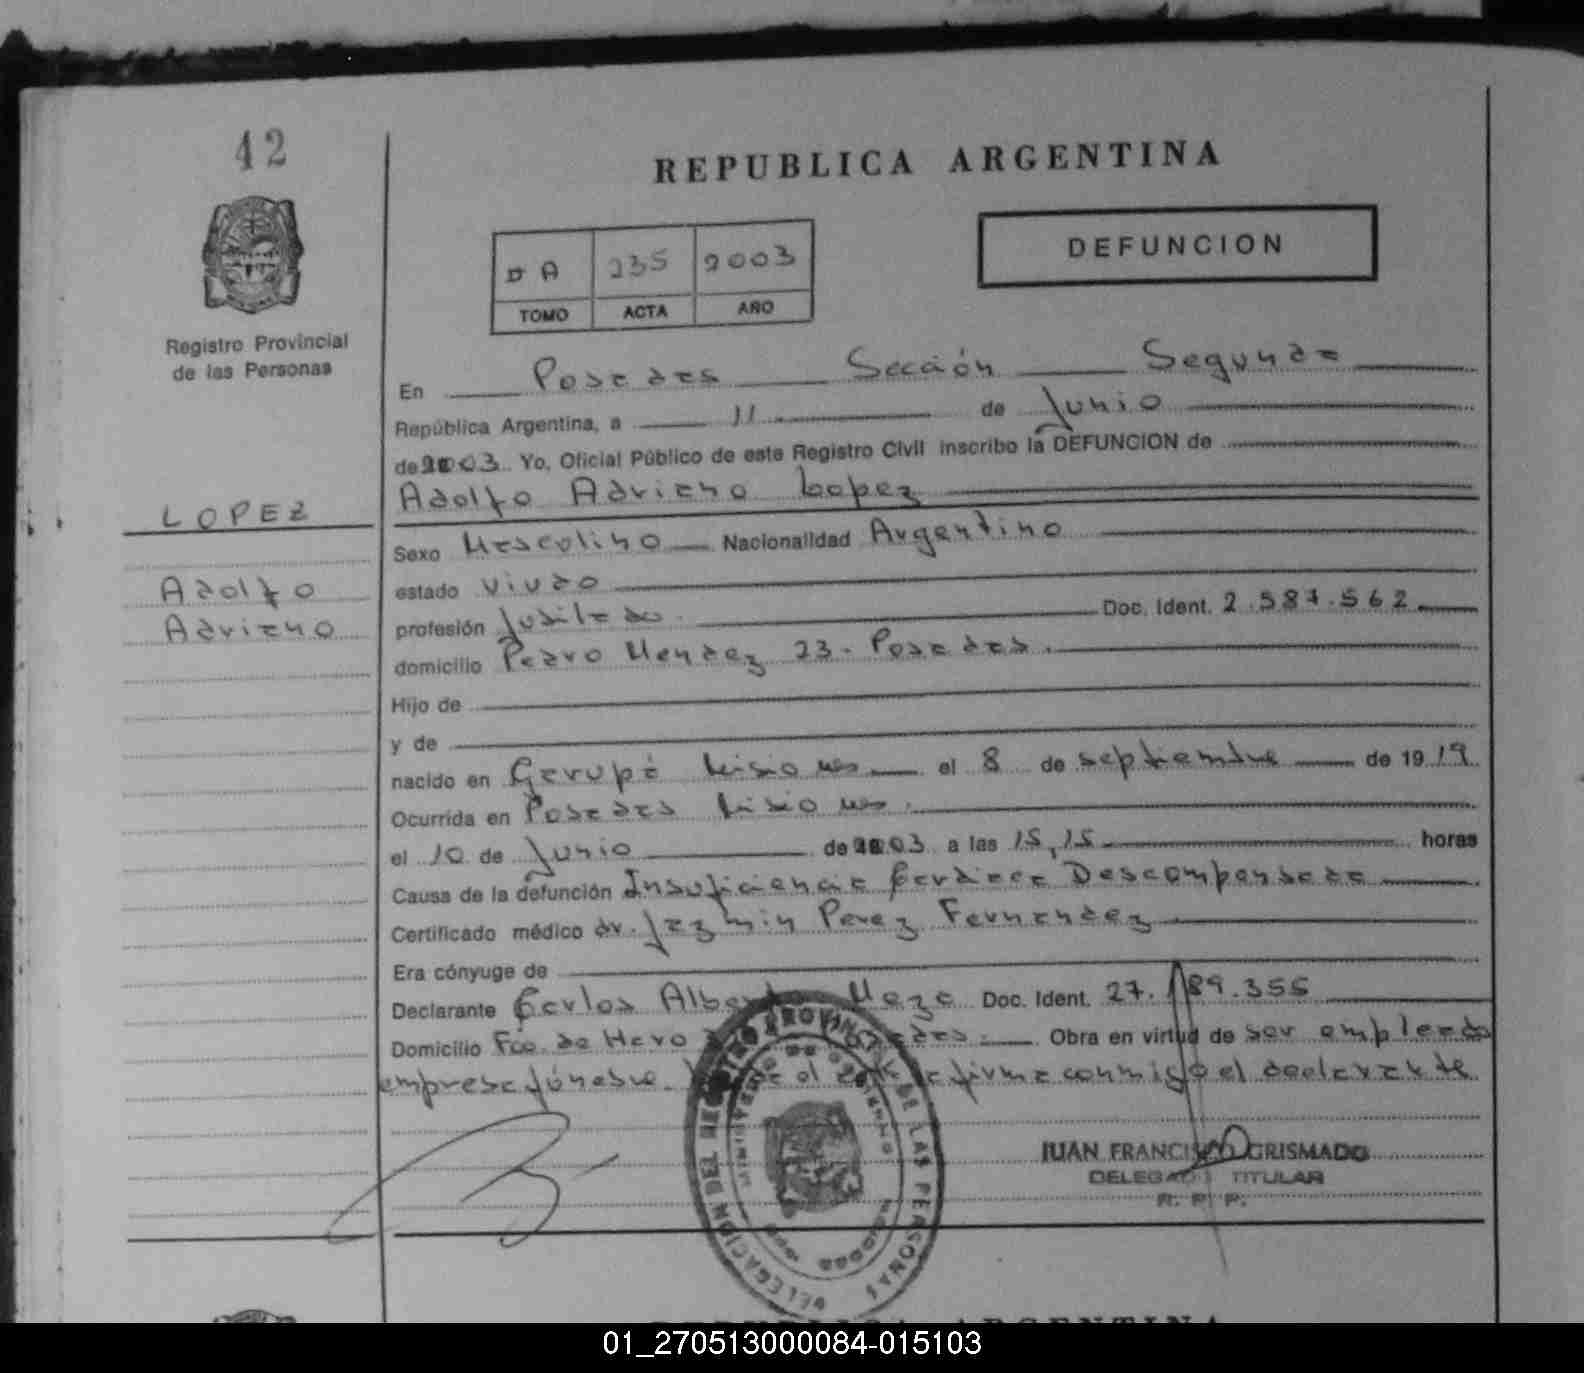 42
REPUBLICA ARGENTINA
DEFUNCION
A 235 2003
TOMO ACTA AÑO
Registro Provincial
de las Personas
En Posadas Sección Segunda
República Argentina, a 11 de Junio
de 2003 Yo, Oficial Público de este Registro Civil inscribo la DEFUNCION de
Adolfo Adriano Lopez
LOPEZ
Adolfo
Adriano
Sexo Masculino Nacionalidad Argentino
estado viudo
profesión Jubilado. Doc. Ident. 2.587.562
domicilio Pedro Mendez 23 - Posadas.
Hijo de
y de
nacido en Garupá Misiones el 8 de septiembre de 1919
Ocurrida en Posadas Misiones.
el 10 de Junio de 2003 a las 15,15 horas
Causa de la defunción Insuficiencia Cardiaca Descompensada
Certificado médico dr. Jazmin Perez Fernandez
Era cónyuge de
Declarante Carlos Alberto Meza Doc. Ident. 27.189.355
Domicilio Fco. de Haro Obra en virtud de ser empleado
empresa fúnebre. el firma conmigo el declarante
JUAN FRANCISCO GRISMADO
DELEGADO TITULAR
R. P. P.
DELEGACION DEL REGISTRO PROVINCIAL DE LAS PERSONAS
MINISTERIO DE GOBIERNO
REPUBLICA ARGENTINA
01_270513000084-015103